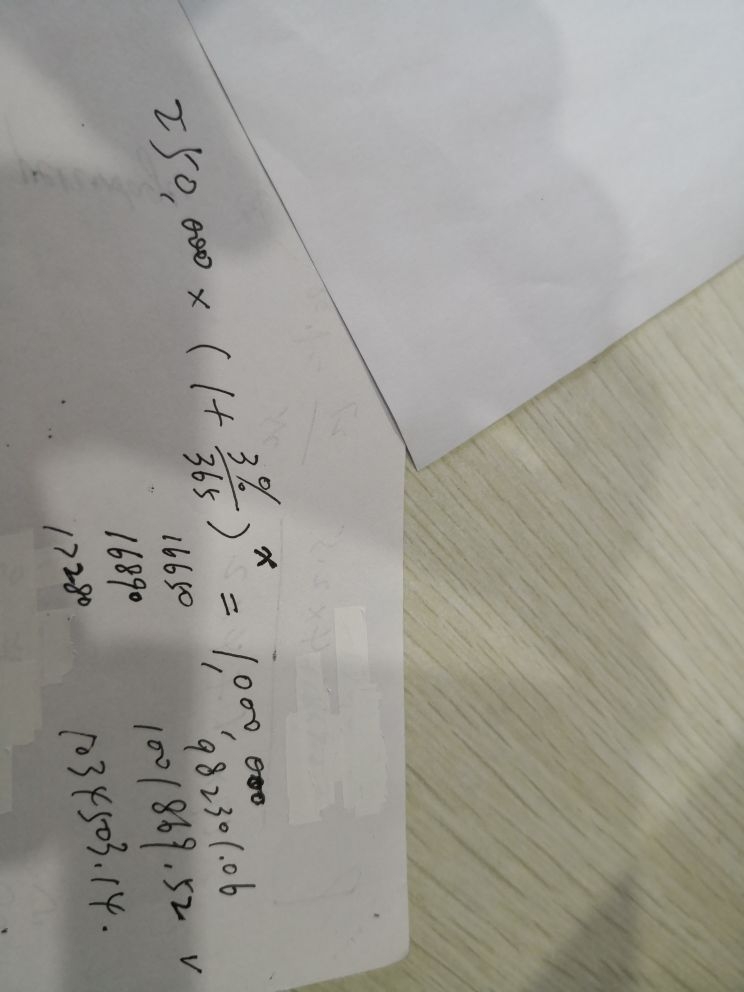 250,000 × (1 + 3%/365)^x = 1,000,000
16650 982301.06
16890 1001869.52 ✓
17280 1034503.14.